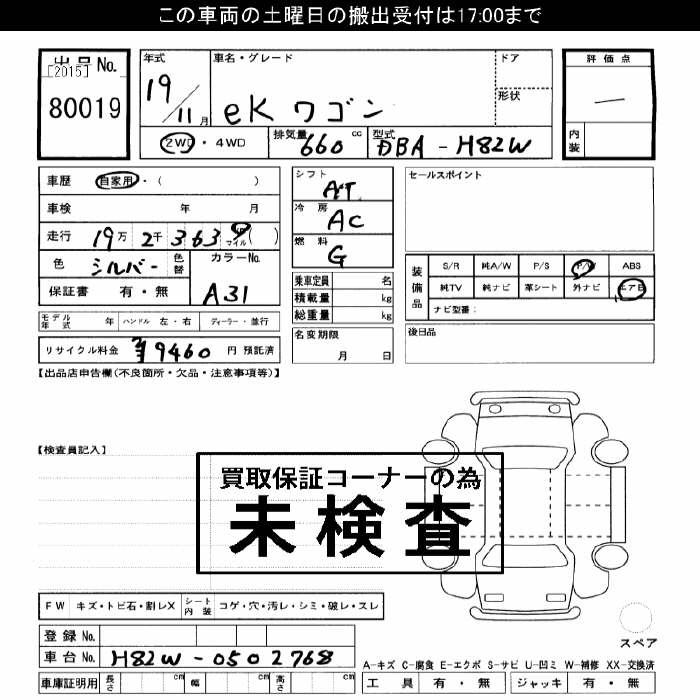 この車両の土曜日の搬出受付は17:00まで
出品No.
[2015]
80019
年式 車名・グレード ドア
19/11月 eK ワゴン 形状
2WD・4WD 排気量 660 cc 型式 DBA-H82W
評価点
内装
車歴 自家用・( )
車検 年 月
走行 19万 2千 363 マイル( )
色 シルバー 色替 カラーNo.
保証書 有・無 A31
モデル年式 年 ハンドル 左・右 ディーラー・並行
リサイクル料金 ¥9460 円 預託済
シフト AT
冷房 AC
燃料 G
乗車定員 名
積載量 kg
総重量 kg
名変期限
月 日
セールスポイント
装備品
S/R 純A/W P/S P/W ABS
純TV 純ナビ 革シート 外ナビ エアB
ナビ型番:
後日品
【出品店申告欄(不良箇所・欠品・注意事項等)】
【検査員記入】
買取保証コーナーの為
未検査
FW キズ・トビ石・割レX シート内装 コゲ・穴・汚レ・シミ・破レ・スレ
登録No.
車台No. H82W-0502768
車庫証明用 長さ cm 幅 cm 高さ cm
スペア
A-キズ C-腐食 E-エクボ S-サビ U-凹ミ W-補修 XX-交換済
工具 有・無 ジャッキ 有・無